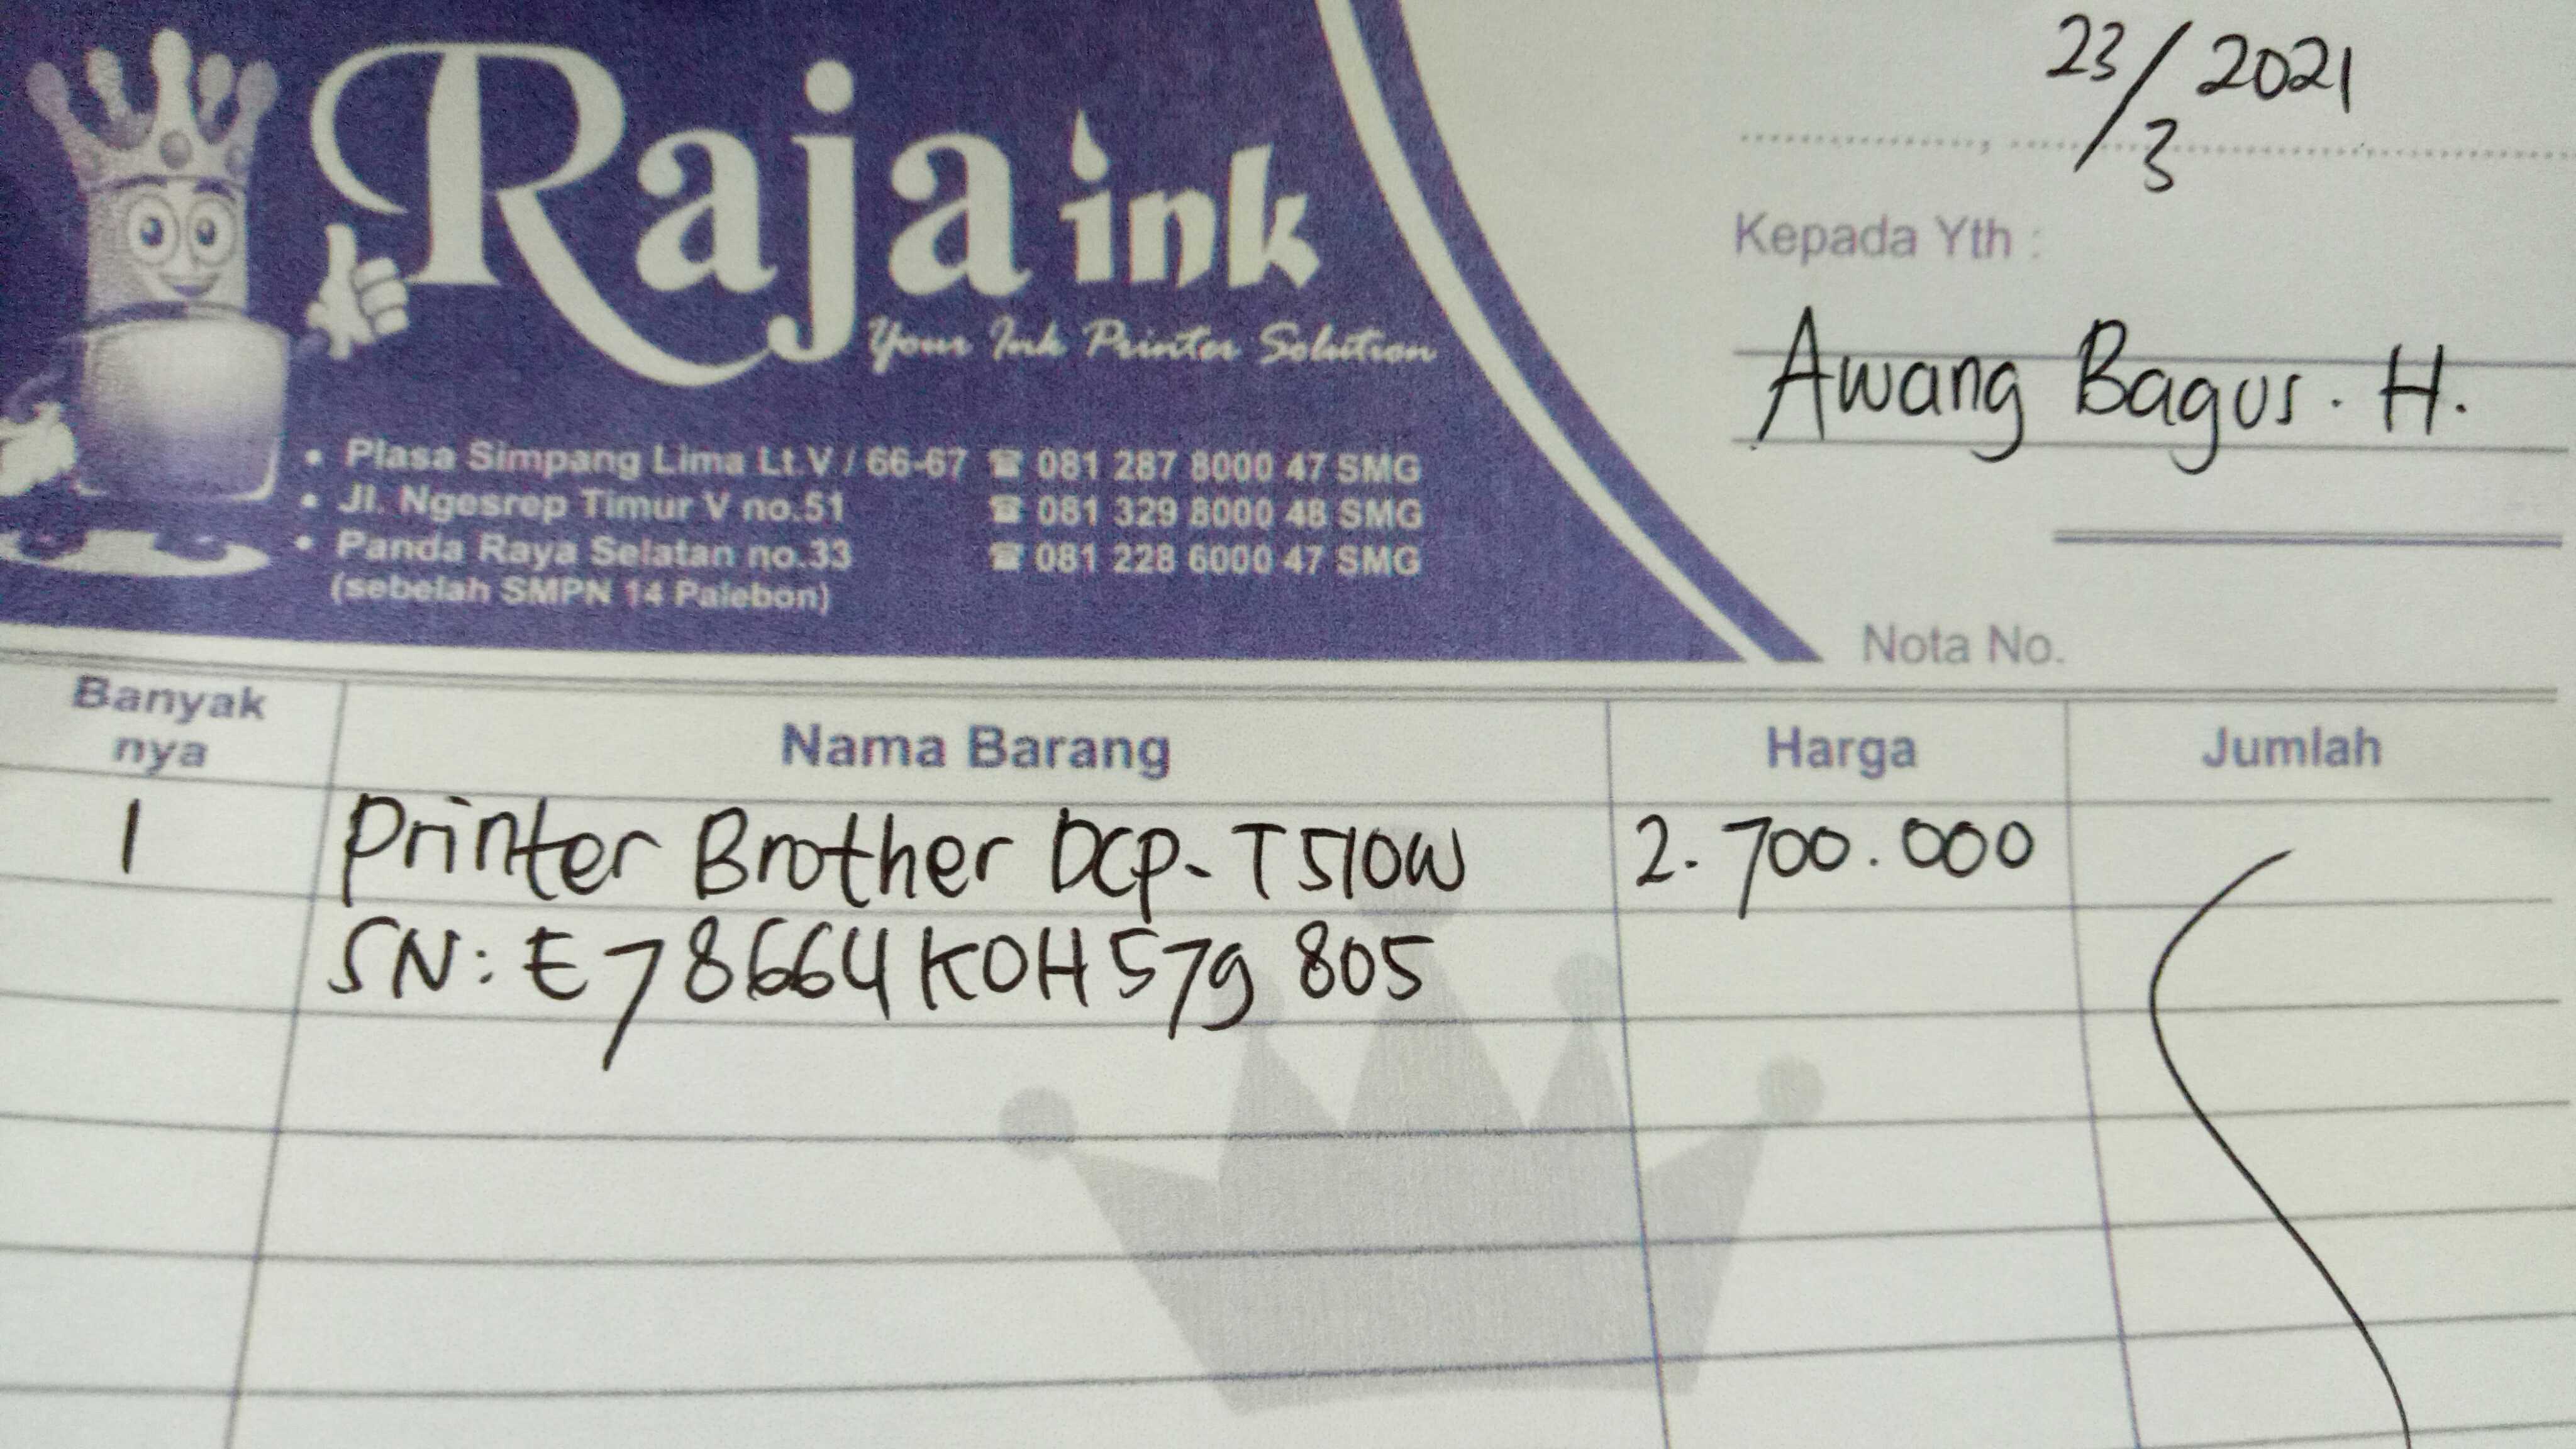 Raja ink
Your Ink Printer Solution
• Plasa Simpang Lima Lt.V / 66-67 ☎ 081 287 8000 47 SMG
• Jl. Ngesrep Timur V no.51 ☎ 081 329 8000 48 SMG
• Panda Raya Selatan no.33 ☎ 081 228 6000 47 SMG
(sebelah SMPN 14 Palebon)
23/3 2021
Kepada Yth :
Awang Bagus. H.
Nota No.
Banyak nya Nama Barang Harga Jumlah
1 Printer Brother DCP-T510W 2.700.000
SN: E78664K0H579805